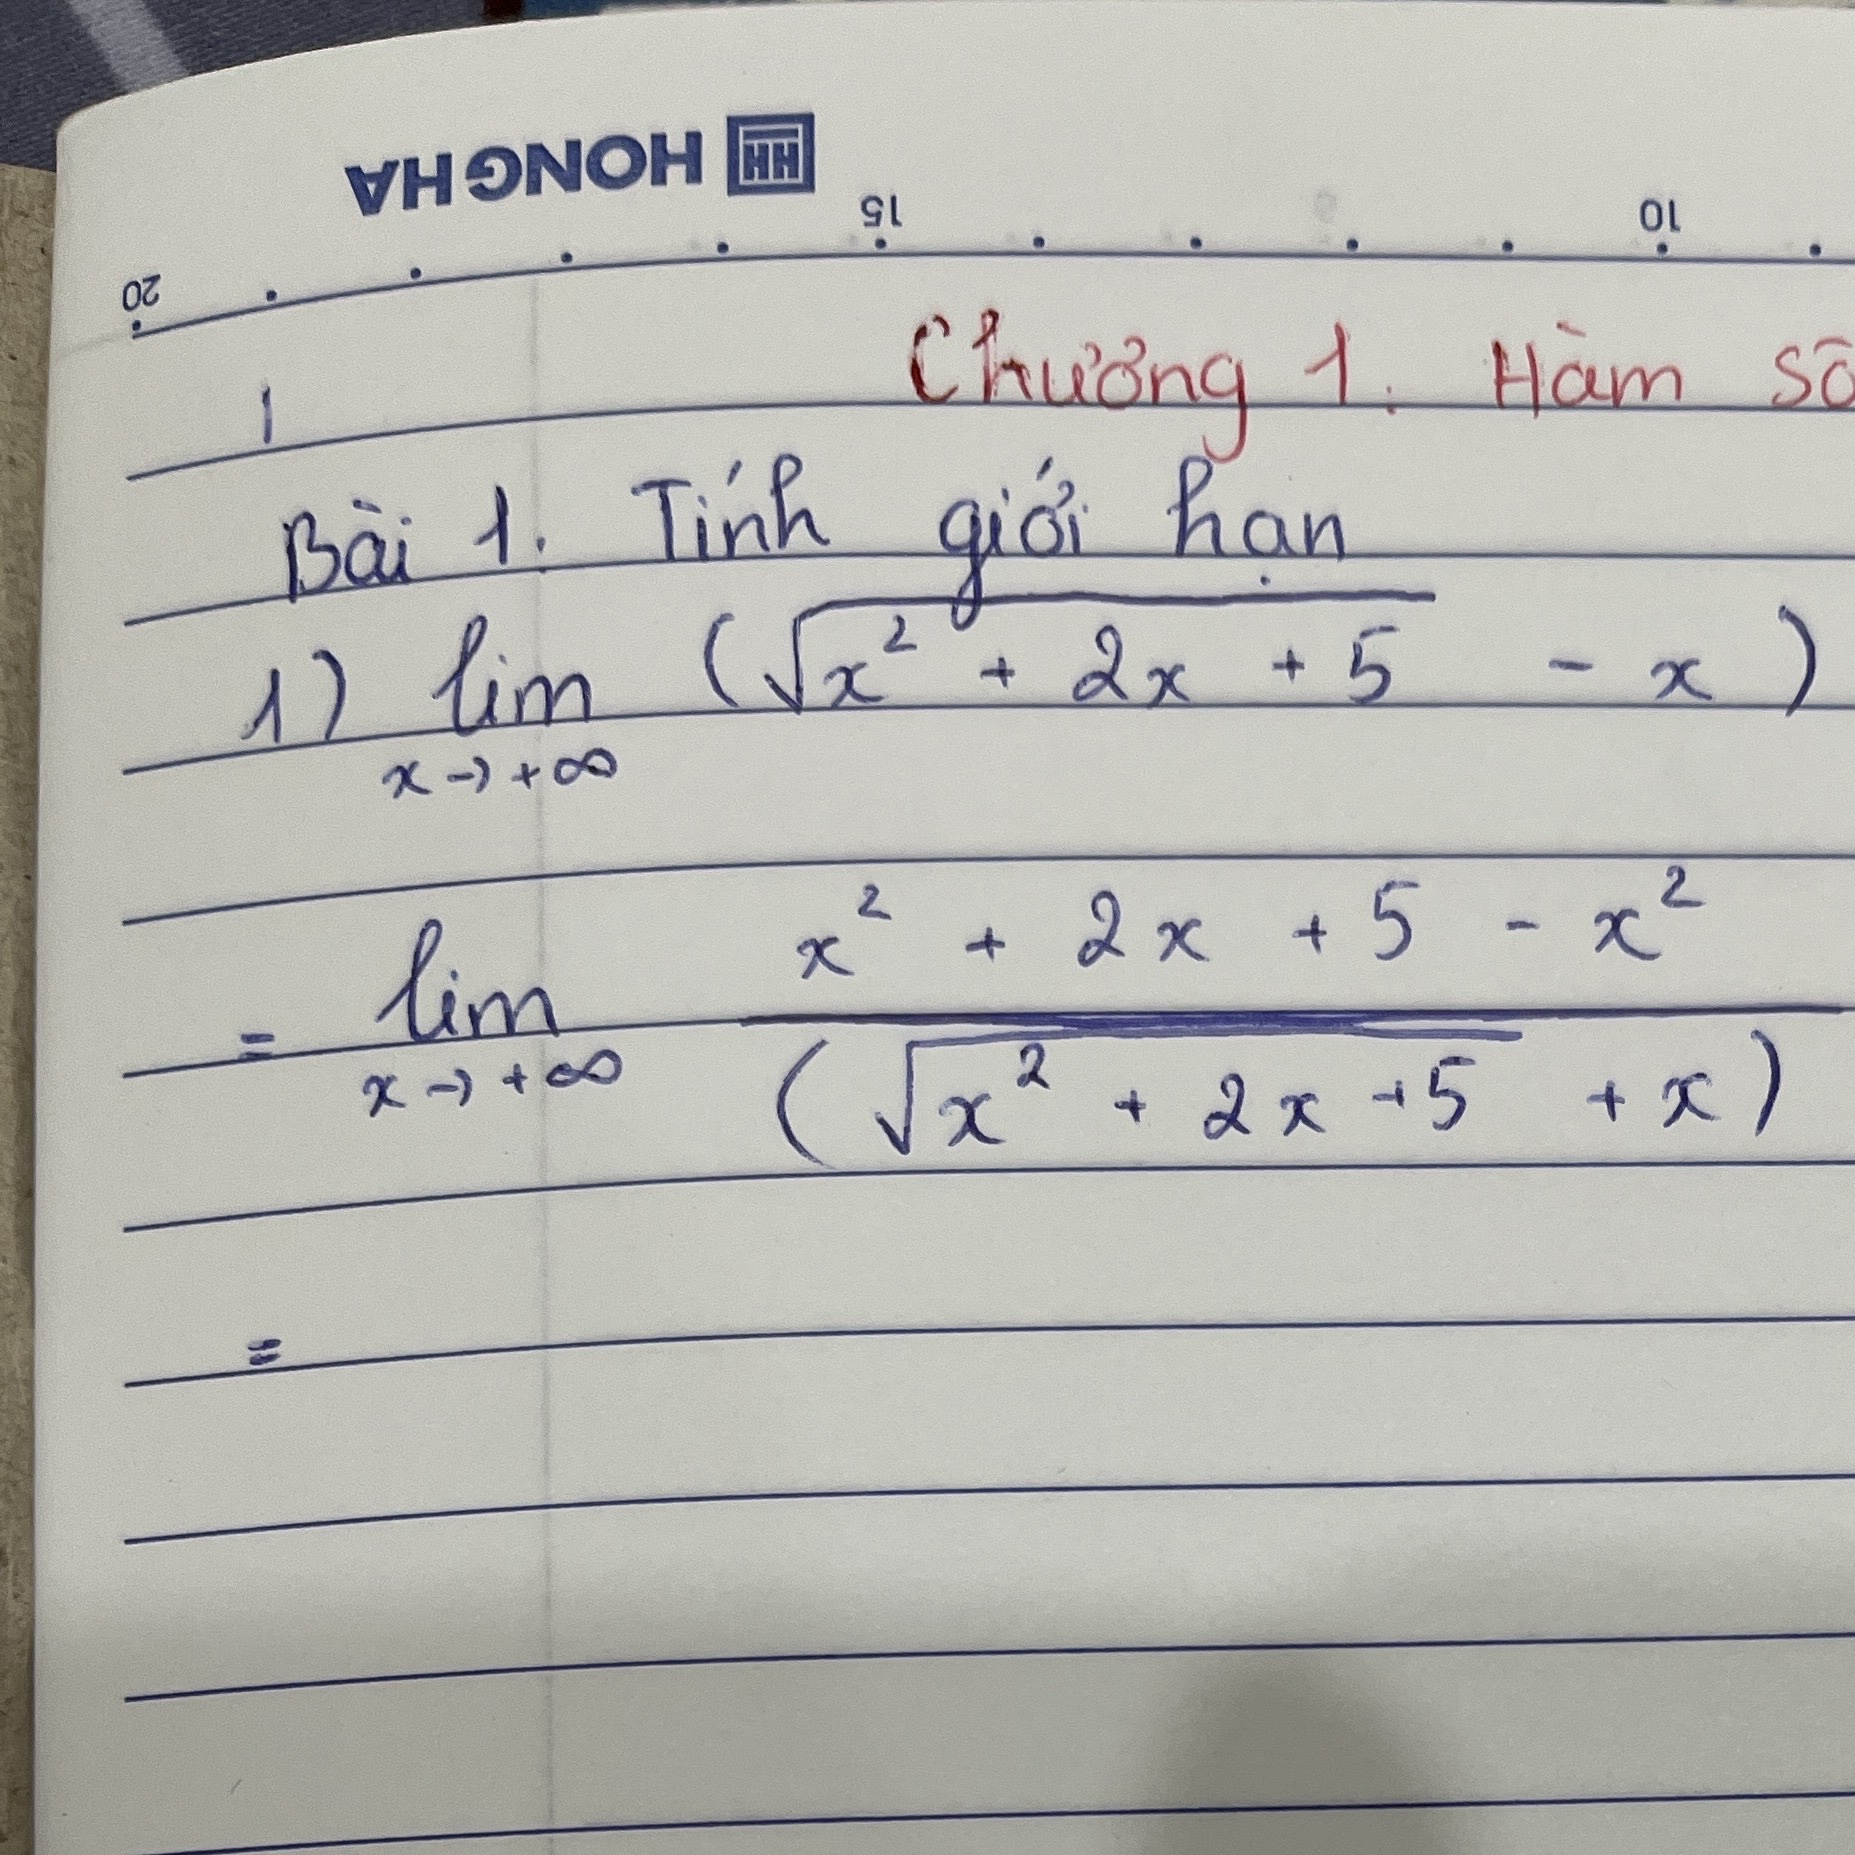 HONG HA
20 15 10
Chương 1. Hàm số
Bài 1. Tính giới hạn
1) lim (√x² + 2x + 5 - x)
x → +∞
= lim x² + 2x + 5 - x²
x → +∞ (√x² + 2x + 5 + x)
=